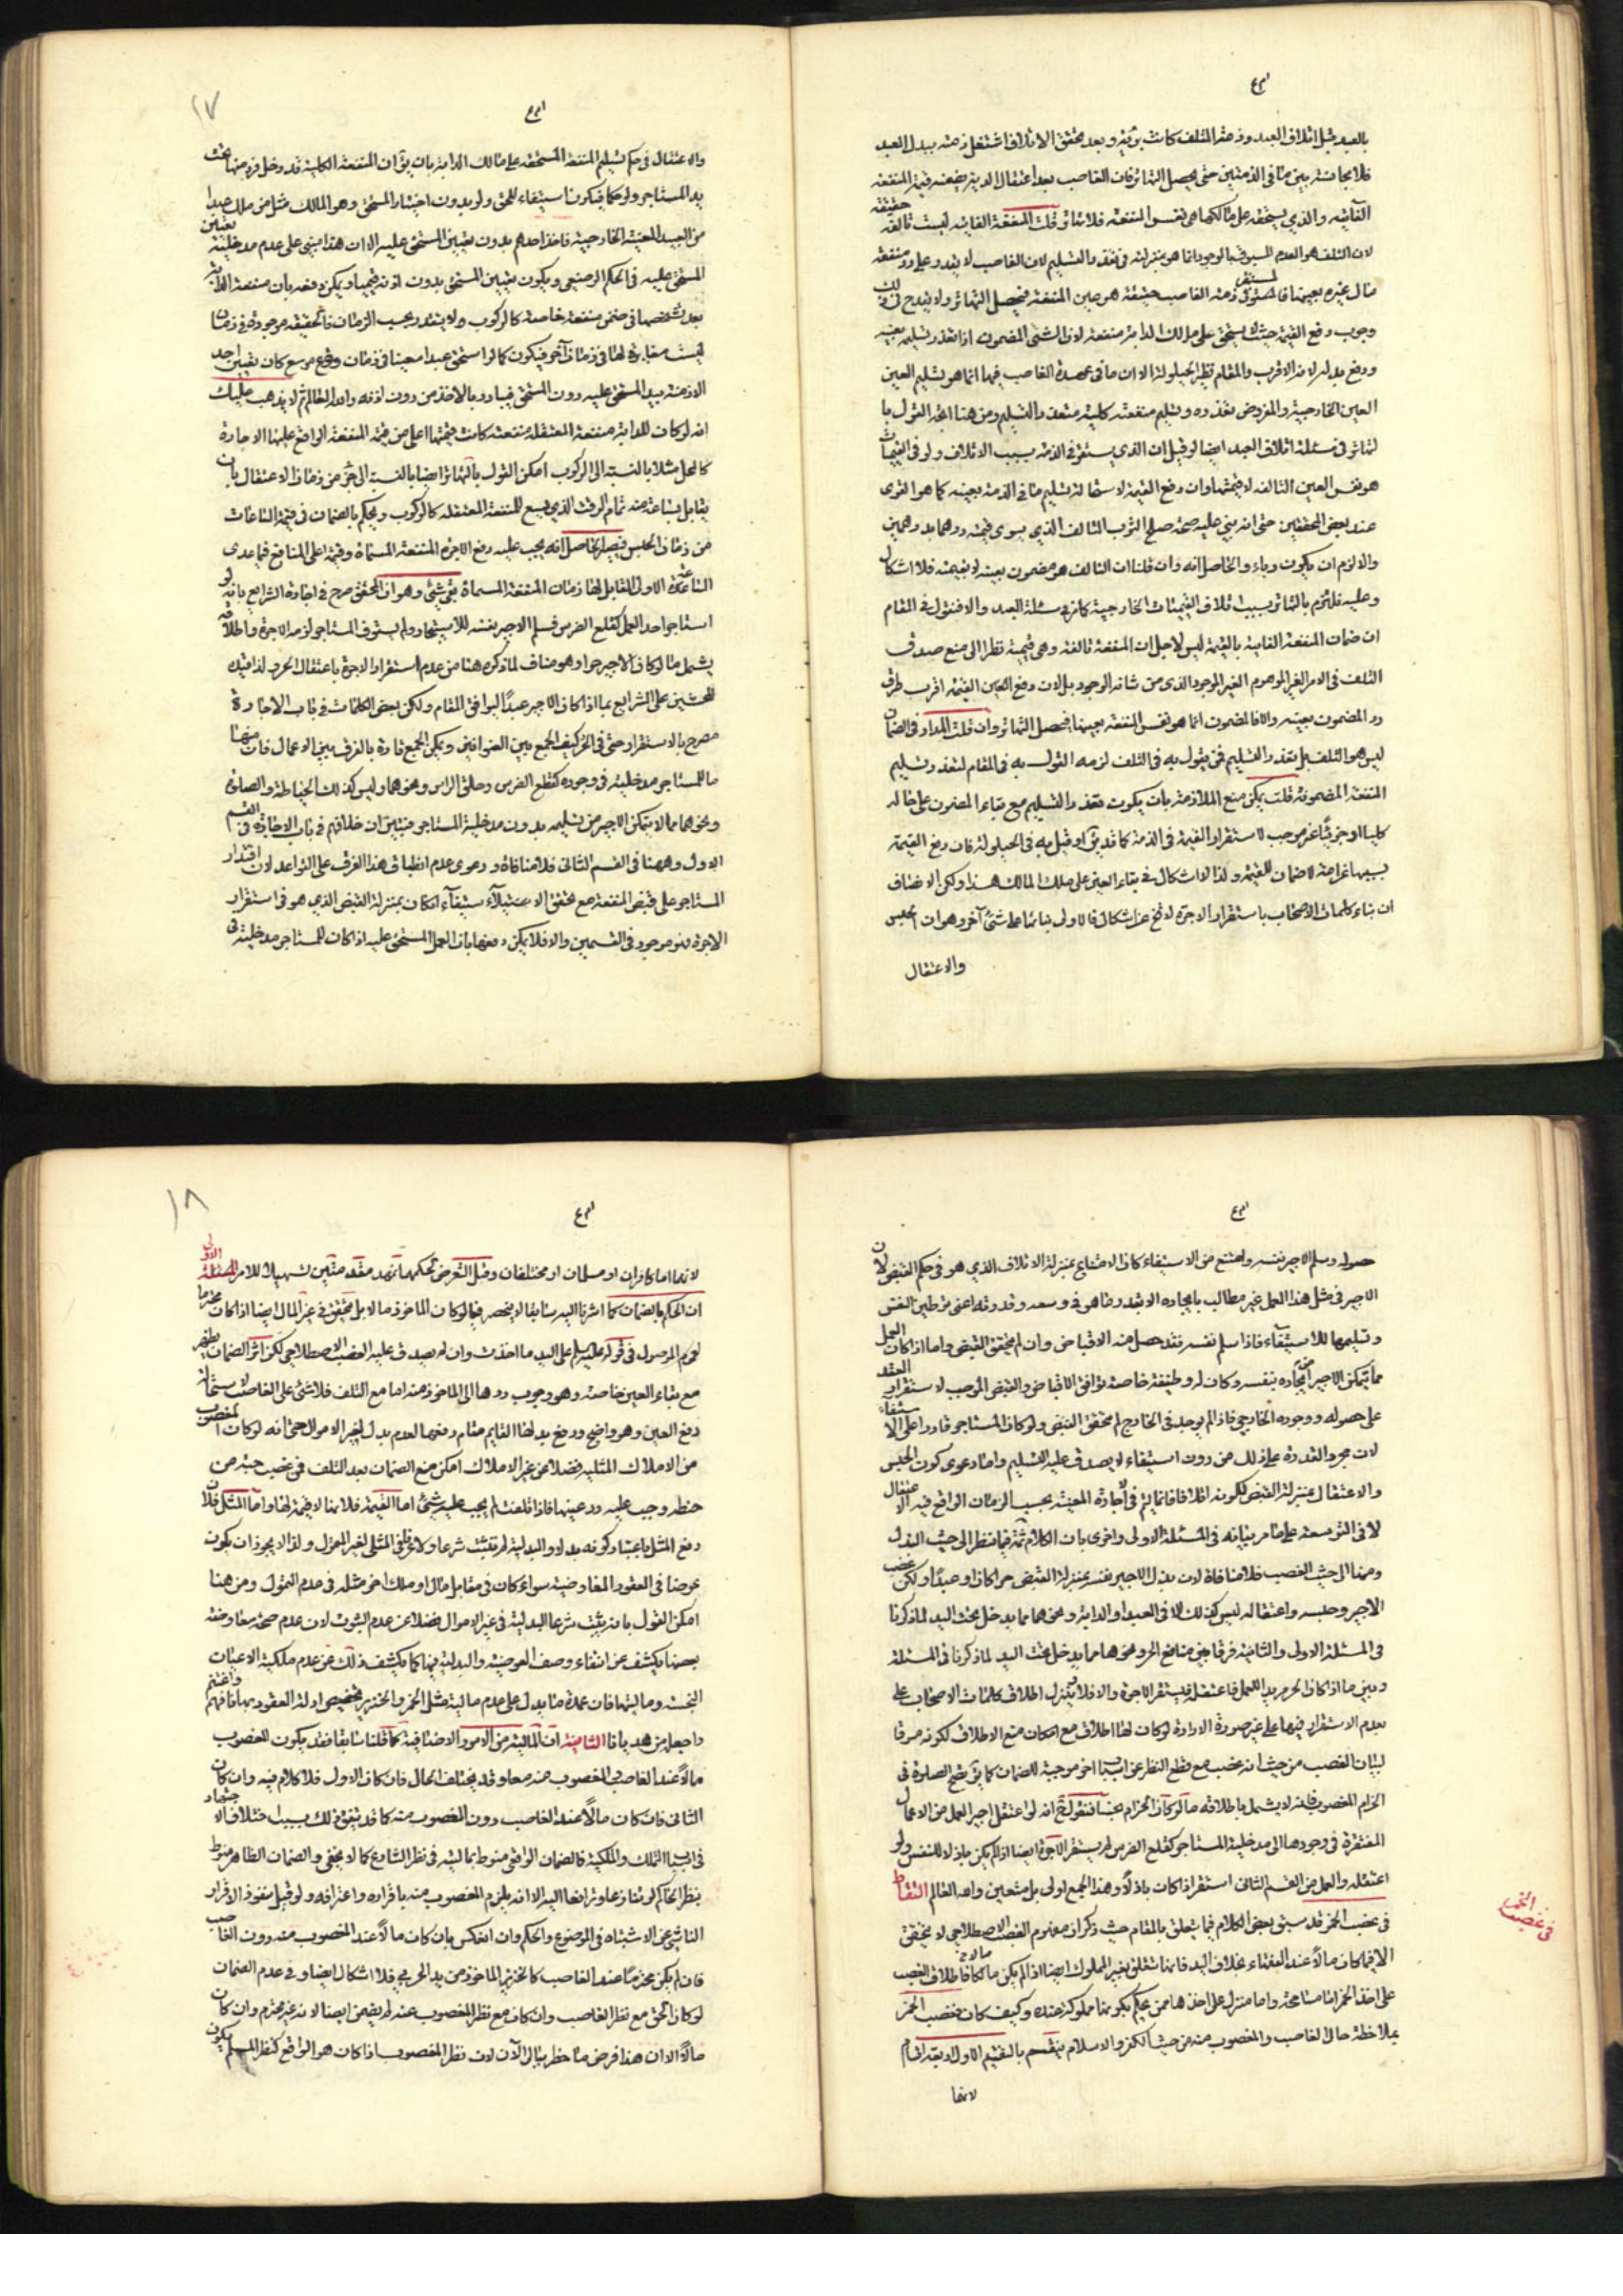 بالعبد قبل اتلاف العبد وذمة المتلف كانت بريئة وبعد تحقق الاتلاف اشتغل ذمته ببدل العبد
فلا مجانسة بين ما في الذمتين حتى يحصل التهاتر فان الغاصب بعد اعتقال الدابة يضمنه قيمة المنفعة
الفايتة والذي يستحقه على مالكها هي نفس المنفعة فلا تهاتر قلت المنفعة الفايتة ليست تالفة حقيقة
لان التلف هو العدم المسبوق بالوجود انما هو بمنزلته في تعذر التسليم لان الغاصب لا يقدر على رد منفعة
مال غيره بعينها فالمستقر في ذمة الغاصب حقيقة هو عين المنفعة فيحصل التهاتر ولا يقدح في ذلك
وجوب دفع القيمة حيث لا يستحق على مالك الدابة منفعة لان الشئ المضمون اذا تعذر تسليمه بعينه
ودفع بدله لانه الاقرب والمقام نظير الحيلولة الا ان ما في عهدة الغاصب فيها انما هو تسليم العين
العين الخارجية والمفروض تعذره وتسليم منفعته كلية متعذر التسليم ومن هنا اتجه القول با
لتهاتر في مسئلة اتلاف العبد ايضا لو قيل ان الذي يستقر في الذمة بسبب الاتلاف ولو في القيميات
هو نفس العين التالفة لا قيمتها وان دفع القيمة لاستحالة تسليم ما في الذمة بعينه كما هو القوى
عند بعض المحققين حتى انه بنى عليه صحة صلح الثوب التالف الذي يسوى قيمته درهما بدرهمين
والا لزم ان يكون رباء والحاصل انه وان قلنا ان التالف هو مضمون بعينه لا بقيمته فلا اشكال
وعليه فنلتزم بالتهاتر بسبب اتلاف القيميات الخارجية كما في مسئلة العبد والا فنقول في المقام
ان ضمان المنفعة الفايتة بالقيمة ليس لاجل ان المنفعة تالفة وهي قيمية نظرا الى منع صدق
التلف في الامر الغير الموهوم الغير الموجود الذي من شانه الوجود بل لان دفع القيمة اقرب طرق
رد المضمون بعينه والا فالمضمون انما هو نفس المنفعة بعينها فيحصل التهاتر وان قلت المدار في الضمان
ليس هو التلف بل تعذر التسليم فمن يقول به في التلف لزمه القول به في المقام لتعذر تسليم
المنفعة المضمونة قلت يمكن منع الملازمة بان يكون تعذر التسليم مع بقاء المضمون على حاله
كليا او جزئيا غير موجب لاستقرار القيمة في الذمة كما قد يق او قيل به في الحيلولة فان دفع القيمة
بسببها غرامة لا ضمان للقيمة ولذا لا اشكال في بقاء العين على ملك المالك هذا ولكن الانصاف
ان بناء كلمات الاصحاب باستقرار الاجرة لا تخ عن اشكال فالاولى بنائها على شئ آخر وهو ان الحبس
والاعتقال
١٧
والاعتقال في حكم تسليم المنفعة المستحقة على مالك الدابة بان يق ان المنفعة الكلية قد دخل فرد منها تحت
يد المستاجر ولو حكما فيكون استيفاء للحق ولو بدون اختيار المستحق وهو المالك مثل من ملك عبدا
من العبيد المعينة الخارجية فاخذ احدهم بدون تعيين المستحق عليه الا ان هذا مبني على عدم مدخلية تعيين
المستحق عليه في الحكم الوضعي ويكون تعيين المستحق بدون اذنه قبيحا ويمكن دفعه بان منفعة الدابة
بعد تشخصها في ضمن منفعة خاصة كالركوب ولا يتعدد بحسب الزمان فالحقيقة موجودة في زمان
ليست مغايرة لها في زمان آخر فيكون كما لو استحق عبدا معينا في زمان وقع موسع كان تعيين احد
الازمنة بيد المستحق عليه دون المستحق فبادر بالاخذ من دون اذنه والله العالم ثم لا يذهب عليك
انه لو كان للدابة منفعة المعتقلة منفعة كانت قيمتها اعلى من قيمة المنفعة الواقع عليها الاجارة
كالحمل مثلا بالنسبة الى الركوب امكن القول بالتهاتر ايضا بالنسبة الى جزء من زمان الاعتقال بان
يقابل بساعة منه تمام الوقت الذي يسع للمنفعة المعتقلة كالركوب ويحكم بالضمان في قيمة الساعات
من زمان الحبس فيصير الحاصل انه يجب عليه دفع الاجرة المنفعة المسماة وقيمة اعلى المنافع فيما عدى
الساعة الاولى المقابل لها زمان المنفعة المسماة بقى شئ وهو ان المحقق صرح في اجارة الشرايع بانه لو
استاجر احد العمل كقلع الضرس فسلم الاجير نفسه للاستيجار ولم يستوف المستاجر لزمه الاجرة واطلاقه
يشمل ما لو كان الاجير حرا وهو مناف لما ذكره هنا من عدم استقرار الاجرة باعتقال الحر ولذا قيده
المحشين على الشرايع بما اذا كان الاجير عبدا ليوافق المقام ولكن بعض الكلمات في باب الاجارة
مصرح بالاستقرار حتى في الحر كيف الجمع بين العنوانين ويمكن الجمع تارة بالفرق بين الاعمال فان منها
ما للمستاجر مدخلية في وجوده كقطع الضرس وحلق الراس ونحوهما وليس كذلك الخياطة والصلوة
ونحوهما مما لا يتمكن الاجير من تسليمه بدون مدخلية المستاجر فتبين ان خلافهم في باب الاجارة في القسم
الاول وههنا في القسم الثاني فلا منافاة ودعوى عدم انطباق هذا الفرق على القواعد لان اقتدار
المستاجر على قبض المنفعة مع تحقق الاستيلاء استيفاء او كان بمنزلة القبض الذي هو في استقرار
الاجرة فهو موجود في القسمين والا فلا يمكن دفعها بان العمل المستحق عليه اذا كان للمستاجر مدخلية في
حصوله وسلم الاجير نفسه وامتنع من الاستيفاء كان الامتناع بمنزلة الاتلاف الذي هو في حكم القبض لان
الاجير في مثل هذا العمل غير مطالب بايجاده الا بقدر ما هو في وسعه وقدرته اعنى توطين النفس
وتسليمها للاستيفاء فاذا سلم نفسه فقد حصل منه الاقباض وان لم يتحقق القبض واما اذا كان العمل
مما يتمكن الاجير من ايجاده بنفسه وكان له وظيفة خاصة توافق الاقباض والقبض الموجب لاستقرار العقد
على حصوله ووجوده الخارجي فاذا لم يوجد في الخارج لم يتحقق القبض ولو كان المستاجر قادرا على الاستيفاء
لان مجرد القدرة على ذلك من دون استيفاء لا يصدق عليه التسليم واما دعوى كون الحبس
والاعتقال بمنزلة القبض لكونه اتلافا فانما يتم في الاجارة المعينة بحسب الزمان الواقع فيه الاعتقال
لا في التوسعة على ما مر بيانه في المسئلة الاولى واخرى بان الكلام ثمة فيما نظر الى حيث البذل
وهنا الى حيث الغصب فلا منافاة لان بذل الاجير نفسه بمنزلة القبض حرا كان او عبدا ولكن غصب
الاجير وحبسه واعتقاله ليس كذلك الا في العبد او الدابة ونحوهما مما يدخل تحت اليد لما ذكرنا
في المسئلة الاولى والثانية فرقا بين منافع الحر ونحوهما مما يدخل تحت اليد لما ذكرنا في المسئلة
وبين ما اذا كان الحر مريدا للعمل فاعتقله فيستقر الاجرة والا فلا وينزل اطلاق كلمات الاصحاب على
عدم الاستقرار فيها على غير صورة الارادة لو كان لها اطلاق مع امكان منع الاطلاق لكونه مسوقا
لبيان الغصب من حيث انه غصب مع قطع النظر عن اسباب اخر موجبة للضمان كما يق تصح الصلوة في
الحزام المغصوب فانه لا يشمل باطلاقه ما لو كان الحزام نجسا فنقول تح انه لو اعتقل اجير العمل من الاعمال
المفتقرة في وجودها الى مدخلية المستاجر كقلع الضرس لم يستقر الاجرة ايضا اذا لم يكن باذلا للنفس ولو
اعتقله والعمل من القسم الثاني استقر اذا كان باذلا وهذا الجمع اولى بل متعين والله العالم التقاط
في غصب الخمر قد سبق بعض الكلام فيما يتعلق بالمقام حيث ذكر ان مفهوم الغصب الاصطلاحي لا يتحقق
الا فيما كان مالا عند العقلاء بخلاف اليد فانما تتعلق بغير المملوك ايضا اذا لم يكن مالا فاطلاق الغصب
على اخذ الخمر اما مسامحة واما منزل على اخذها ممن يحكم بكونها مملوكة عنده وكيف كان فغصب الخمر
بملاحظة حال الغاصب والمغصوب منه من حيث الكفر والاسلام ينقسم بالتقسيم الاول الى اربعة اقسام
لانهما
في غصب الخمر
١٨
لانهما اما كافران او مسلمان او مختلفان وقبل التعرض لحكمها نمهد مقدمتين تسهيلا للامر الاولى
ان الحكم بالضمان كما اشرنا اليه سابقا لا ينحصر فيما لو كان الماخوذ مالا بل يتحقق في غير المال ايضا اذا كان محترما
لعموم الموصول في قوله عليه السلم على اليد ما اخذت وان لم يصدق عليه الغصب الاصطلاحي لكن اثر الضمان يظهر
مع بقاء العين خاصة وهو وجوب ردها الى الماخوذ منه اما مع التلف فلا شئ على الغاصب لاستحالة
دفع العين وهو واضح ودفع بدلها القايم مقام دفعها لعدم بدل لغير الاموال حتى انه لو كان المغصوب
من الاملاك المثلية فضلا عن غير الاملاك امكن منع الضمان بعد التلف في غصب حبة من
حنطة وجب عليه رد عينها فاذا تلفت لم يجب عليه شئ اما القيمة فلانها لا قيمة لها واما المثل فلان
دفع المثل باعتبار كونه بدلا والبدلية لم تثبت شرعا ولا عرفا في المثلى لغير المتمول ولذا لا يجوز ان يكون
عوضا في العقود المعاوضية سواء كان في مقابل مال او ملك اخر مثله في عدم التمول ومن هنا
امكن القول بانه يثبت شرعا البدلية في غير الاموال فضلا عن عدم الثبوت لان عدم صحة معاوضة
بعضها يكشف عن انتفاء وصف العوضية والبدلية فيها كما يكشف ذلك عن عدم ملكية الاعيان
النجسة وماليتها فان عمدة ما يدل على عدم مالية مثل الخمر والخنزير تخصيص ادلة العقود بها فافهم واغتنم
واجعله من هدايانا الثانية ان المالية من الامور الاضافية كما قلنا سابقا فقد يكون المغصوب
مالا عند الغاصب والمغصوب منه معا وقد يختلف الحال فان كان الاول فلا كلام فيه وان كان
الثاني فان كان مالا عند الغاصب دون المغصوب منه كما قد يتفق ذلك بسبب اختلاف الاجتهاد
في اسباب التملك والملكية فالضمان الواقعي منوط بماليته في نظر الشارع كما لا يخفى والضمان الظاهري منوط
بنظر الحاكم لو تنازعا وترافعا اليه الا انه يلزم المغصوب منه باقراره واعترافه ولو قيل بنفوذ الاقرار
الناشئ عن الاشتباه في الموضوع والحكم وان انعكس بان كان مالا عند المغصوب منه دون الغاصب
فان لم يكن محترما عند الغاصب كالخنزير الماخوذ من يد الحربي فلا اشكال ايضا في عدم الضمان
لو كان الحق مع نظر الغاصب وان كان مع نظر المغصوب عنه لم يضمن ايضا لانه غير محترم وان كان
مالا الا ان هذا فرض ما خطر ببالى الآن لان نظر المغصوب اذا كان هو الواقع كنظر المسلم يكون